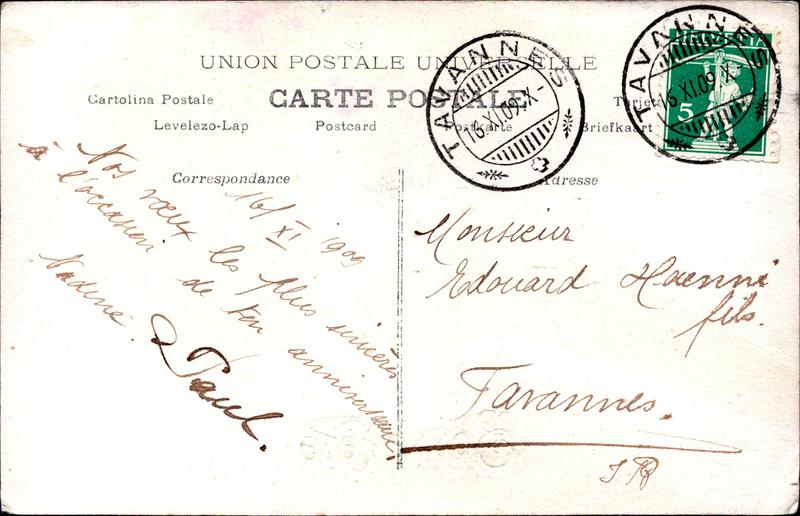 UNION POSTALE UNIVERSELLE
Cartolina Postale
CARTE POSTALE
Tarjeta
Levelezo-Lap
Postcard
Postkarte
Briefkaart
Correspondance
Adresse
TAVANNES
16.XI.09.X-
TAVANNES
16.XI.09.X-
HELVETIA
5
16/XI 1909
Nos vœux les plus sincères
à l'occasion de ton anniversaire,
Nadine
& Paul.
Monsieur
Edouard Haenni
fils.
Tavannes.